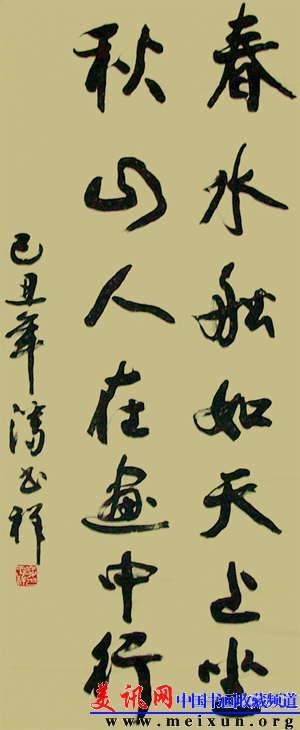 春水船如天上坐
秋山人在画中行
己丑年 潘书祥
美讯网 中国书画收藏频道
www.meixun.org